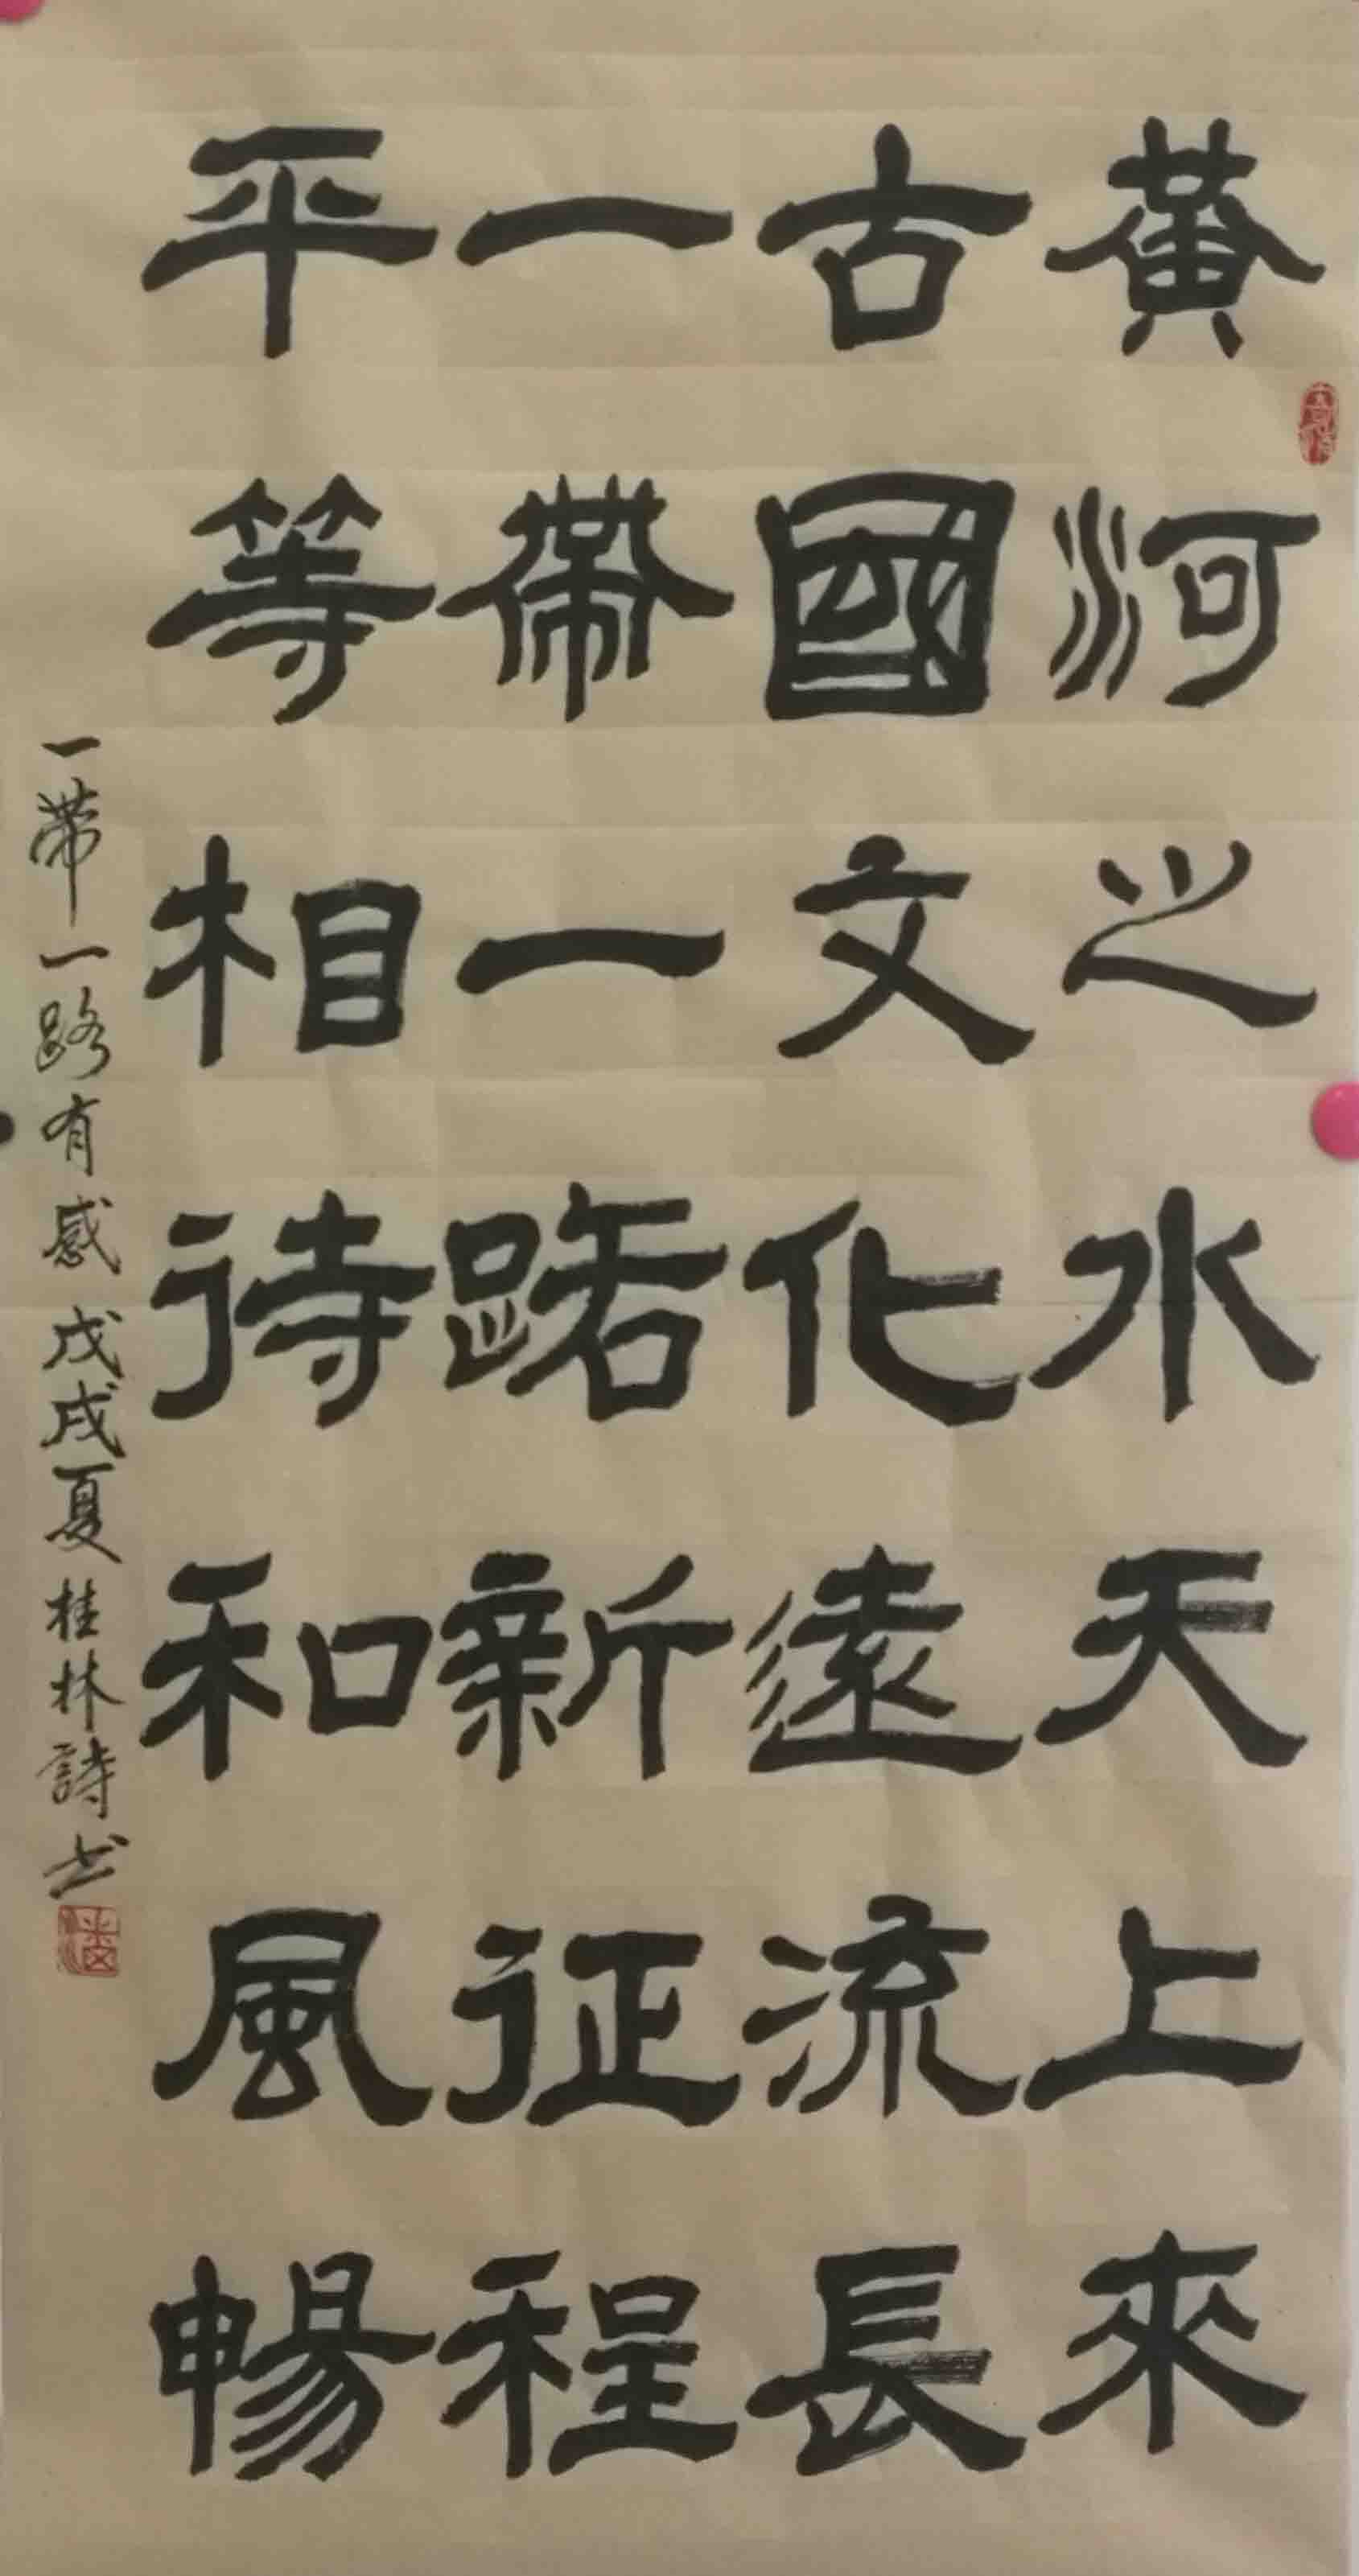 黃河之水天上來
古國文化遠流長
一帶一路新征程
平等相待和風暢
一带一路有感 戊戌夏 桂林詩书